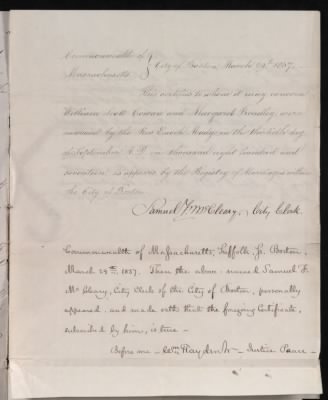 Commonwealth of } City of Boston, March 24th 1857.
Massachusetts
This certifies to whom it may concern
William Scott and Margaret Bradley, were
married by the Rev Enoch on the thirtieth day
of September A.D. on thousand eight hundred and
seventeen as appears by the Registry of Marriages within
the City of Boston
Samuel F. McCleary, City Clerk.
Commonwealth of Massachusetts, Suffolk Ss. Boston,
March 24th 1857. Then the above-named Samuel F.
McCleary, City Clerk of the City of Boston, personally
appeared and made oath that the foregoing Certificate,
subscribed by him, is true –
Before me – Wm Hayden Jr – Justice Peace –